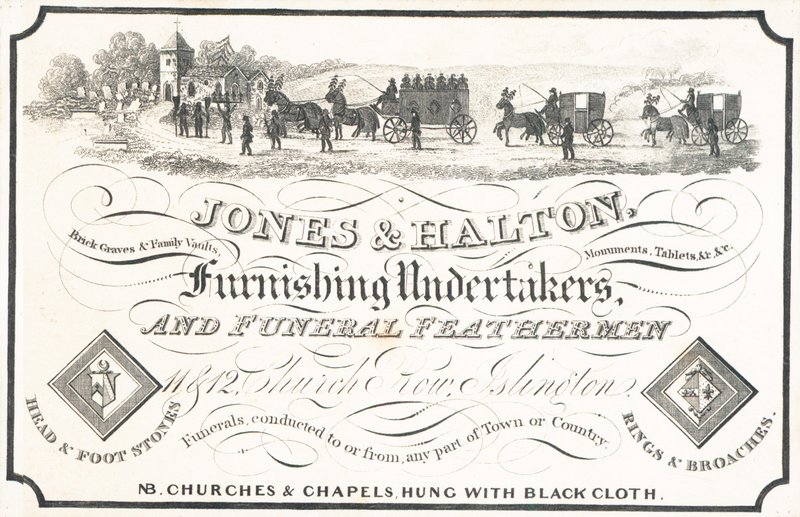 JONES & HALTON,
Brick Graves & Family Vaults,
Monuments, Tablets, &c. &c.
Furnishing Undertakers,
AND FUNERAL FEATHERMEN
11 & 12, Church Row, Islington.
HEAD & FOOT STONES
Funerals, conducted to or from, any part of Town or Country.
RINGS & BROACHES.
NB. CHURCHES & CHAPELS, HUNG WITH BLACK CLOTH.